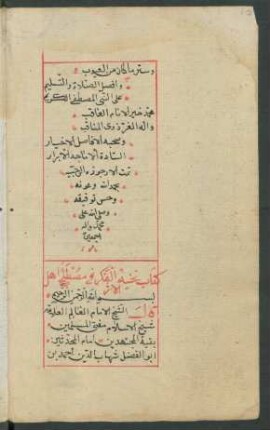 وستر ما كان من العيوب
وافضل الصلاة والتسليم
على النبي المصطفى الكريم
محمد خير الانام العاقب
واله الغر ذوي المناقب
وصحبه الافاضل الاخيار
السادة الاماجد الابرار
تمت الارجوزة
بحمد الله وعونه
وحسن توفيقه
وصلى الله على
محمد واله
اجمعين
كتاب نخبة الفكر في مصطلح اهل
الاثر
بسم الله الرحمن الرحيم
قال الشيخ الامام العالم العلامة
شيخ الاسلام مفتي المسلمين
بقية المجتهدين امام المحدثين
ابو الفضل شهاب الدين احمد بن